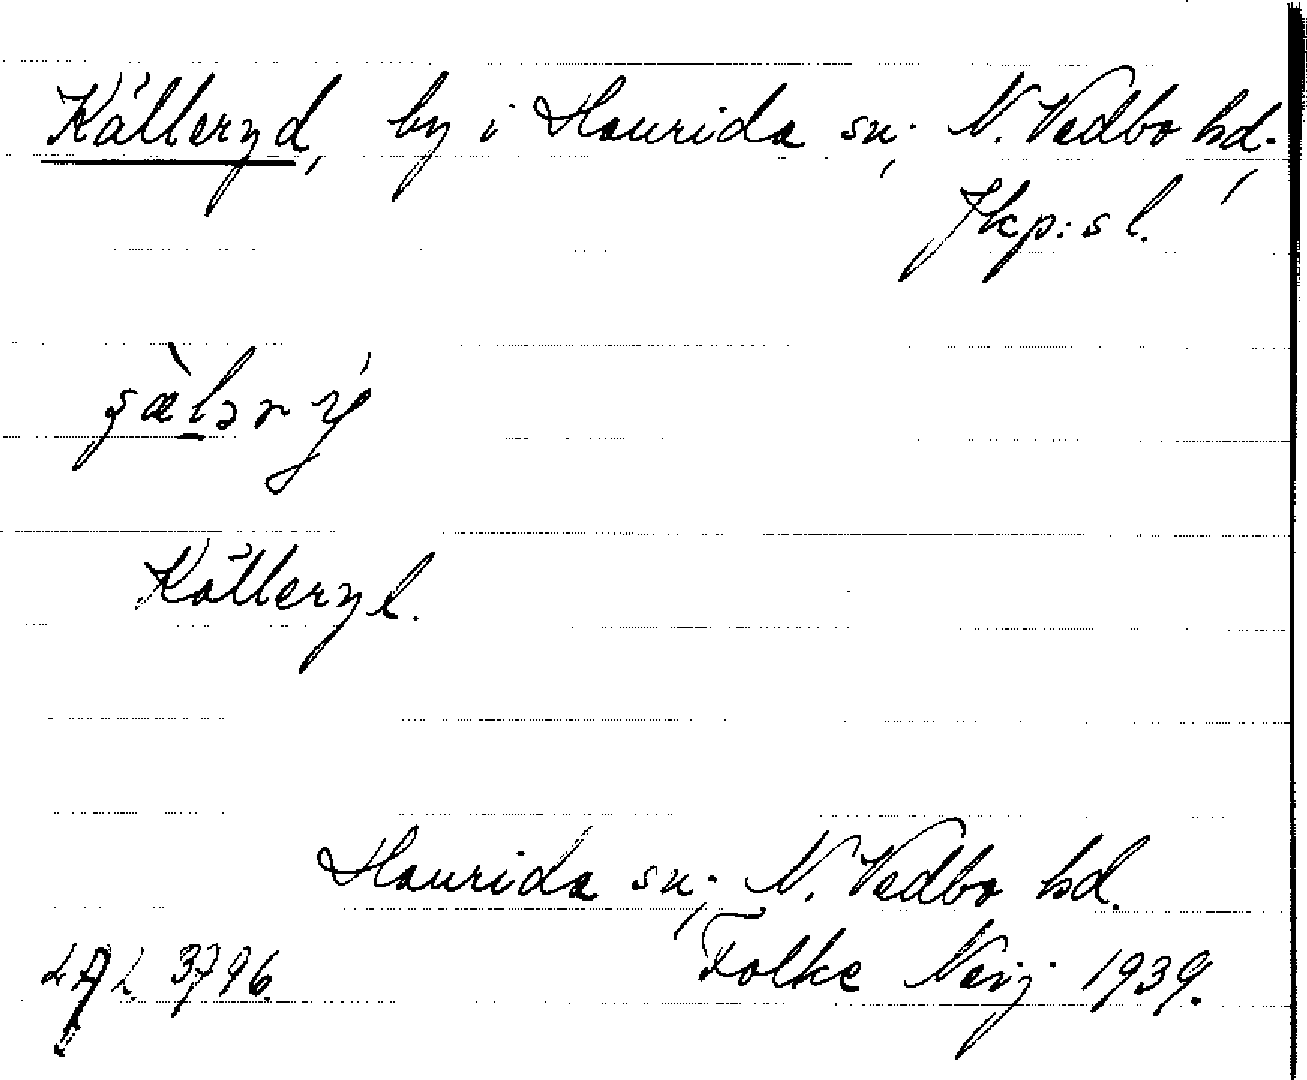 Källeryd, by i Haurida sn, N. Vedbo hd.,
Jkp:s l.
Källeryd.
Haurida sn, N. Vedbo hd.
Folke Neij 1939.
3796.